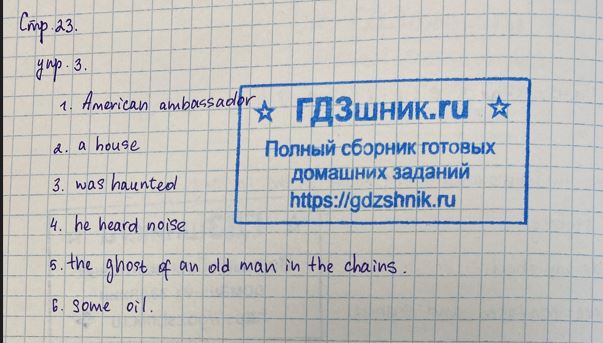 Стр. 23.
упр. 3.
1. American ambassador
2. a house
3. was haunted
4. he heard noise
5. the ghost of an old man in the chains.
6. some oil.
☆ ГДЗшник.ru ☆
Полный сборник готовых
домашних заданий
https://gdzshnik.ru